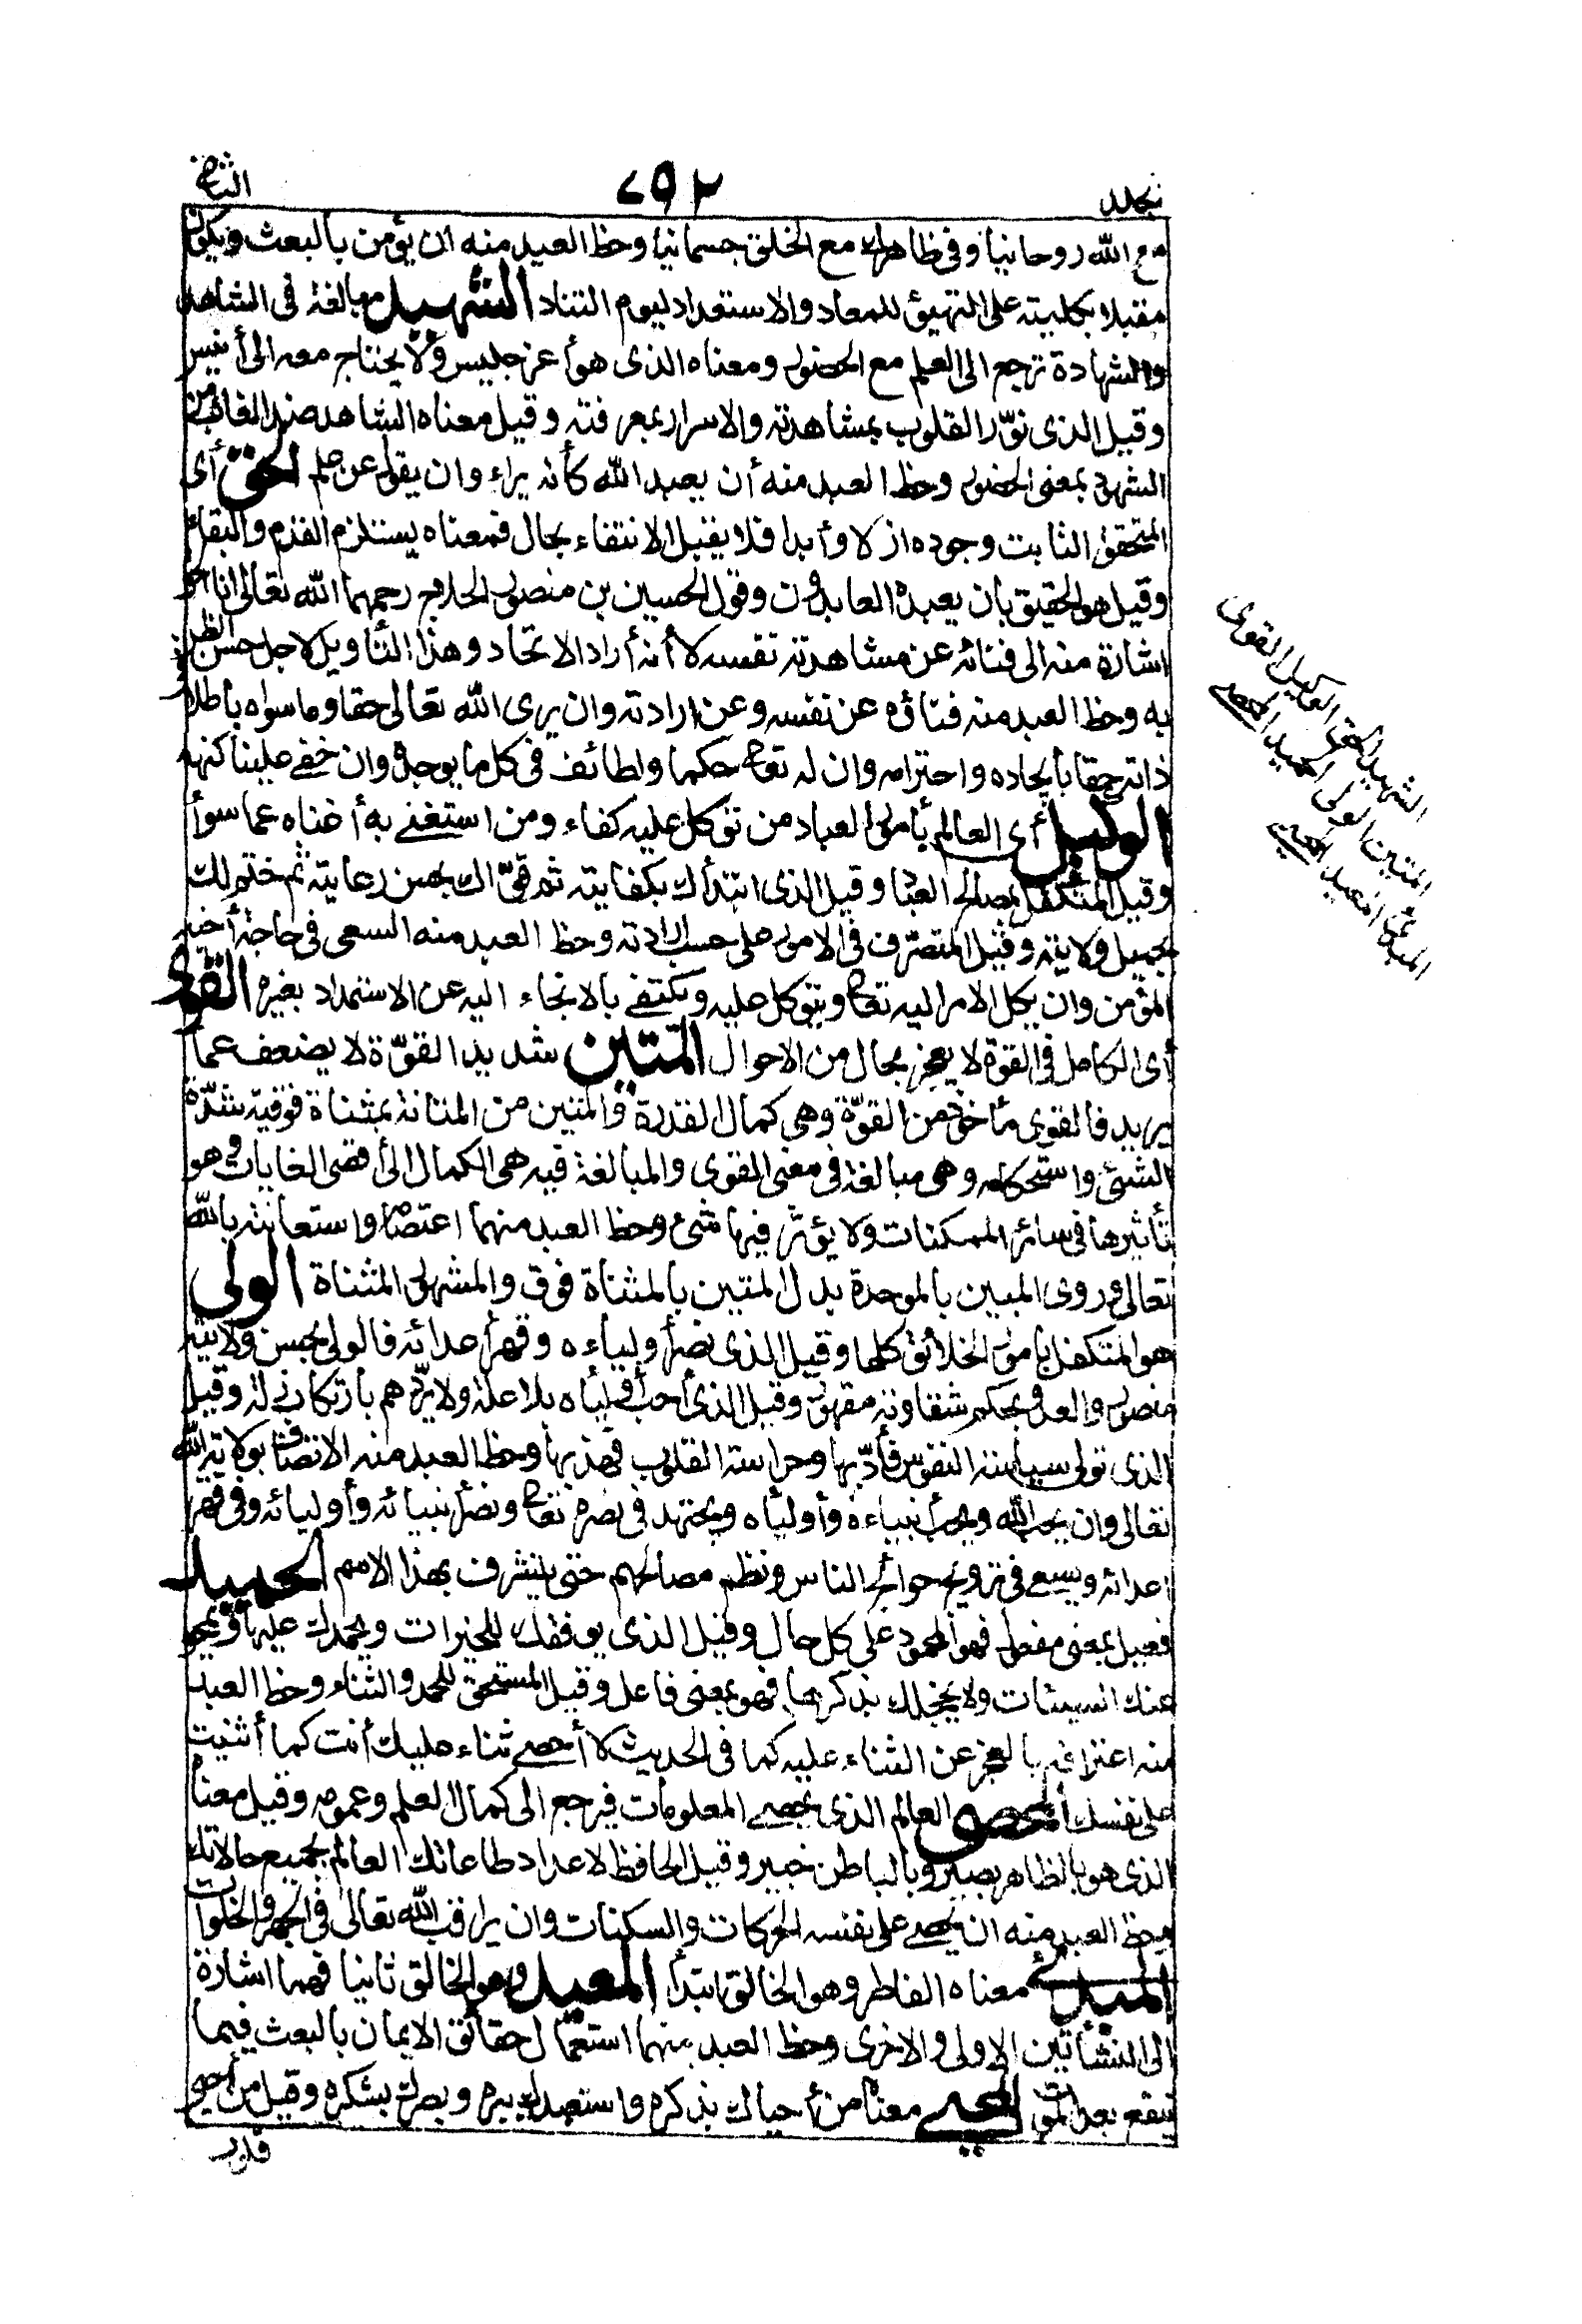 مجلد
٧٩٢
الثاني
مع الله روحانيا وفي ظاهره مع الخلق جسمانيا وحظ العبد منه ان يؤمن بالبعث ويكون
مقبلا بكليته على التهيئ للمعاد والاستعداد ليوم التناد الشهيد مبالغة في الشاهد
والشهادة ترجع الى العلم مع الحضور ومعناه الذى هو أعز جليس ولا يحتاج معه الى أنيس
وقيل الذى نوّر القلوب بمشاهدته والاسرار بمعرفته وقيل معناه الشاهد ضد الغائب من
الشهود بمعنى الحضور وحظ العبد منه أن يعبد الله كأنه يراه وان يقول عن علم الحق أى
المتحقق الثابت وجوده ازلا وأبدا فلا يقبل الانتفاء بحال فمعناه يستلزم القدم والبقاء
وقيل هو الحقيق بان يعبده العابدون وقول الحسين بن منصور الحلاج رحمهما الله تعالى انا الحق
اشارة منه الى فنائه عن مشاهدته نفسه لا أنه أراد الاتحاد وهذا التأويل لاجل حسن الظن
به وحظ العبد منه فناؤه عن نفسه وعن ارادته وان يرى الله تعالى حقا وما سواه باطلا
ذاته حقا بايجاده واحترامه وان له تعالى حكما ولطائف في كل ما يوجده وان خفي علينا كنهه
الوكيل أى العالم بأمور العباد من توكل عليه كفاه ومن استغنى به أغناه عما سواه
وقيل المتكفل بمصالح العباد وقيل الذى ابتدأك بكفايته ثم تولاك بحسن رعايته ثم ختم لك
بجميل ولايته وقيل المتصرف في الامور على حسب ارادته وحظ العبد منه السعى في حاجة أخيه
المؤمن وان يكل الامر اليه تعالى ويتوكل عليه ويكتفي بالالتجاء اليه عن الاستمداد بغيره القوى
أى الكامل في القوة لا يعجز بحال من الاحوال المتين شديد القوّة لا يضعف عما
يريد فالقوى مأخوذ من القوّة وهى كمال القدرة والمتين من المتانة بمثناة فوقية شدّة
الشئ واستحكامه وهى مبالغة في معنى القوى والمبالغة فيه هى الكمال الى أقصى الغايات وهو
تأثيرها في سائر الممكنات ولا يؤثر فيها شئ وحظ العبد منهما اعتصامه واستعانته بالله
تعالى وروى المبين بالموحدة بدل المتين بالمثناة فوق والمشهور المثناة الولى
هو المتكفل بامور الخلائق كلها وقيل الذى نصر أولياءه وقهر أعدائه فالولى بحسن ولايته
منصور والعدو بحكم شقاوته مقهور وقيل الذى أحب أولياءه بلا علة ولا يردّهم بارتكاب زلة وقيل
الذى تولى سياسة النفوس فأدّبها وحراسة القلوب فهذبها وحظ العبد منه الاتصاف بولاية الله
تعالى وان يحب الله ويحب أنبياءه وأولياءه ويجتهد في نصره تعالى ونصر أنبيائه وأوليائه وفي قهر
اعدائه ويسعى في ترويج حوائج الناس ونظم مصالحهم حتى يتشرف بهذا الاسم الحميد
فعيل بمعنى مفعول فهو المحمود على كل حال وقيل الذى يوفقك للخيرات ويحمدك عليها ويمحو
عنك السيئات ولا يخجلك بذكرها فهو بمعنى فاعل وقيل المستحق للحمد والثناء وحظ العبد
منه اعترافه بالعجز عن الثناء عليه كما في الحديث لا أحصي ثناء عليك أنت كما أثنيت
على نفسك المحصى العالم الذى يحصي المعلومات فيرجع الى كمال العلم وعمومه وقيل معناه
الذى هو بالظاهر بصير وبالباطن خبير وقيل الحافظ لاعداد طاعاتك العالم بجميع حالاتك
وحظ العبد منه ان يحصي على نفسه الحركات والسكنات وان يراقب الله تعالى في الجهر والخلوات
المبدئ معناه الفاطر وهو الخالق ابتدأ المعيد وهو الخالق ثانيا فهما اشارة
الى النشأتين الاولى والاخرى وحظ العبد منهما استعمال حقائق الايمان بالبعث فيما
ينفع بعد الموت المحيي معناه من أحياك بذكره واستعبدك ببره وبصرك بشكره وقيل من أحيى
قلوب
الشهيد الحق الوكيل القوى
المتين الولى الحميد المحصي
المبدئ المعيد المحيي